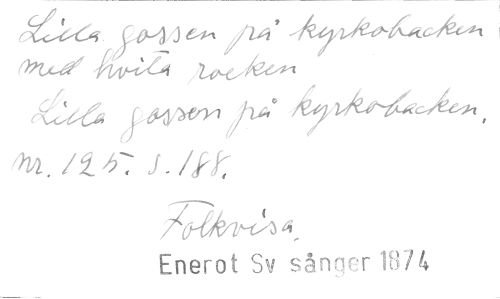 Lilla gossen på kyrkobacken
med hvita rocken
Lilla gossen på kyrkobacken.
nr. 125. s. 188.
Folkvisa.
Enerot Sv sånger 1874